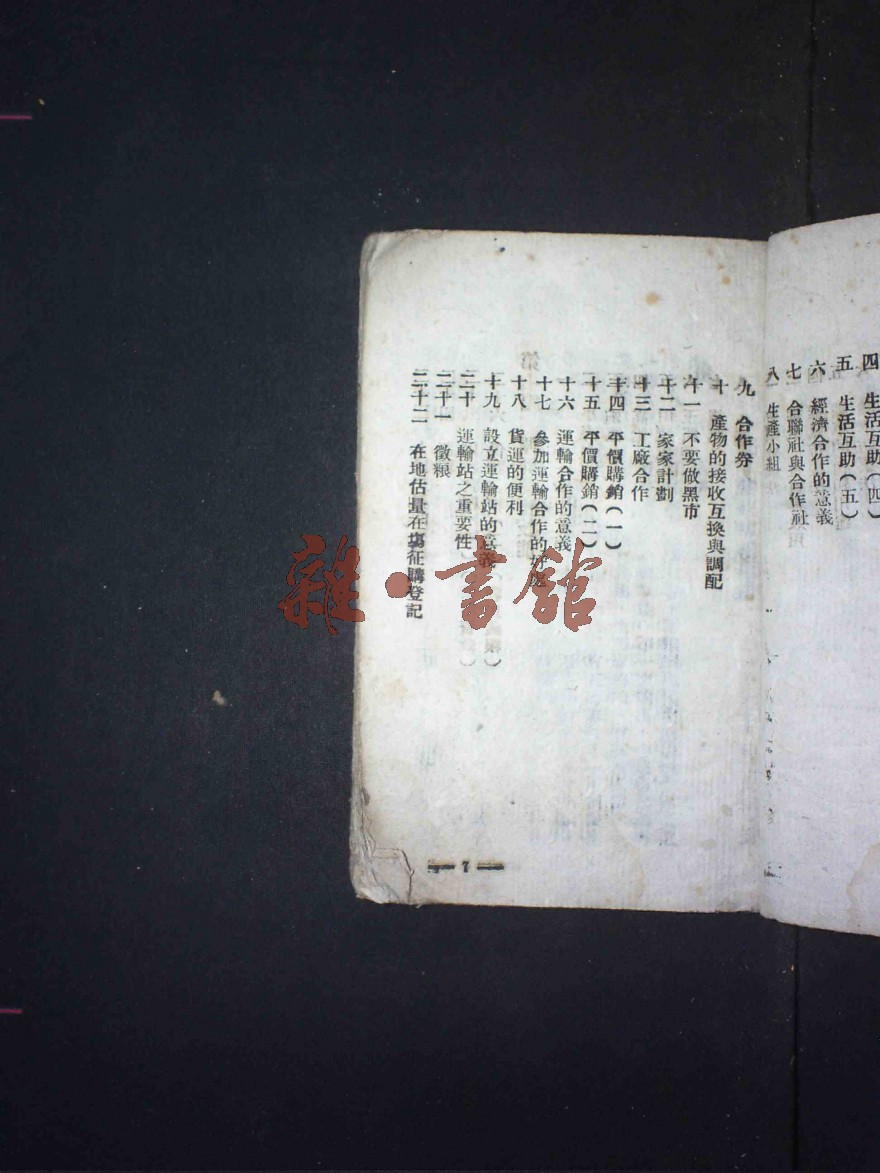 四 生活互助(四)
五 生活互助(五)
六 經濟合作的意義
七 合聯社與合作社
八 生產小組
九 合作券
十 產物的接收互換與調配
十一 不要做黑市
十二 家家計劃
十三 工廠合作
十四 平價購銷(一)
十五 平價購銷(二)
十六 運輸合作的意義
十七 參加運輸合作的好處
十八 貨運的便利
十九 設立運輸站的意義
二十 運輸站之重要性
二十一 徵粮
二十二 在地估量在場征購登記
7
雜·書館